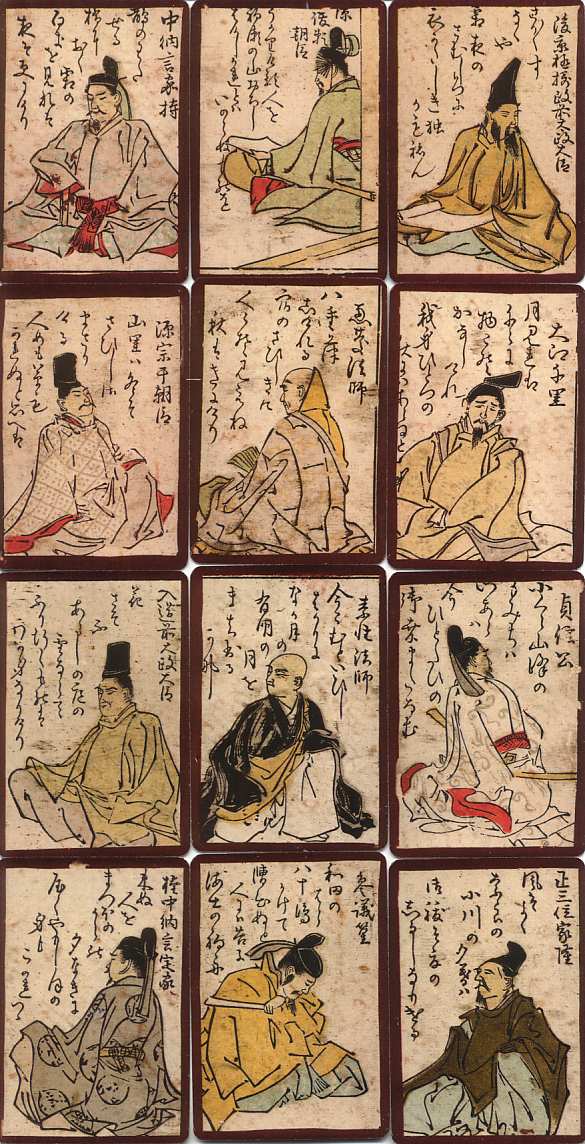 後京極摂政前太政大臣
きり〳〵す
なくや
霜夜の
さむしろに
衣かたしき独
かも祢ん
源俊頼
朝臣
うかりける人を
初瀬の山おろし
はけしかれとは
いのらぬ
中納言家持
鵲のわた
せる
橋に
おく
霜の
しろきを見れは
夜そ更にける
大江千里
月見れは
ちゝに
物こそ
かなしけれ
我身ひとつの
恵慶法師
八重葎
しけれる
宿のさひしきに
人こそみえね
秋はきにけり
源宗于朝臣
山里は冬そ
さひしさ
まさり
ける
人めも草も
かれぬと思へは
貞信公
小くら山峰の
もみちは
心あらは
今
ひとたひの
御幸またなむ
素性法師
今こむといひし
はかりに
なか月の
有明の
月を
まち出る
かな
入道前太政大臣
花
さそ
ふ
あらしの庭の
雪ならて
ふり行ものは
我身なりけり
正三位家隆
風そよく
ならの
小川の夕暮は
御祓そ夏の
しるしなりける
参議篁
和田の
はら
八十嶋
かけて
漕出ぬと
人には告よ
海士の釣舟
権中納言定家
来ぬ
人を
まつほの
うらの
夕なきに
やくやもしほの
身も
こかれつゝ